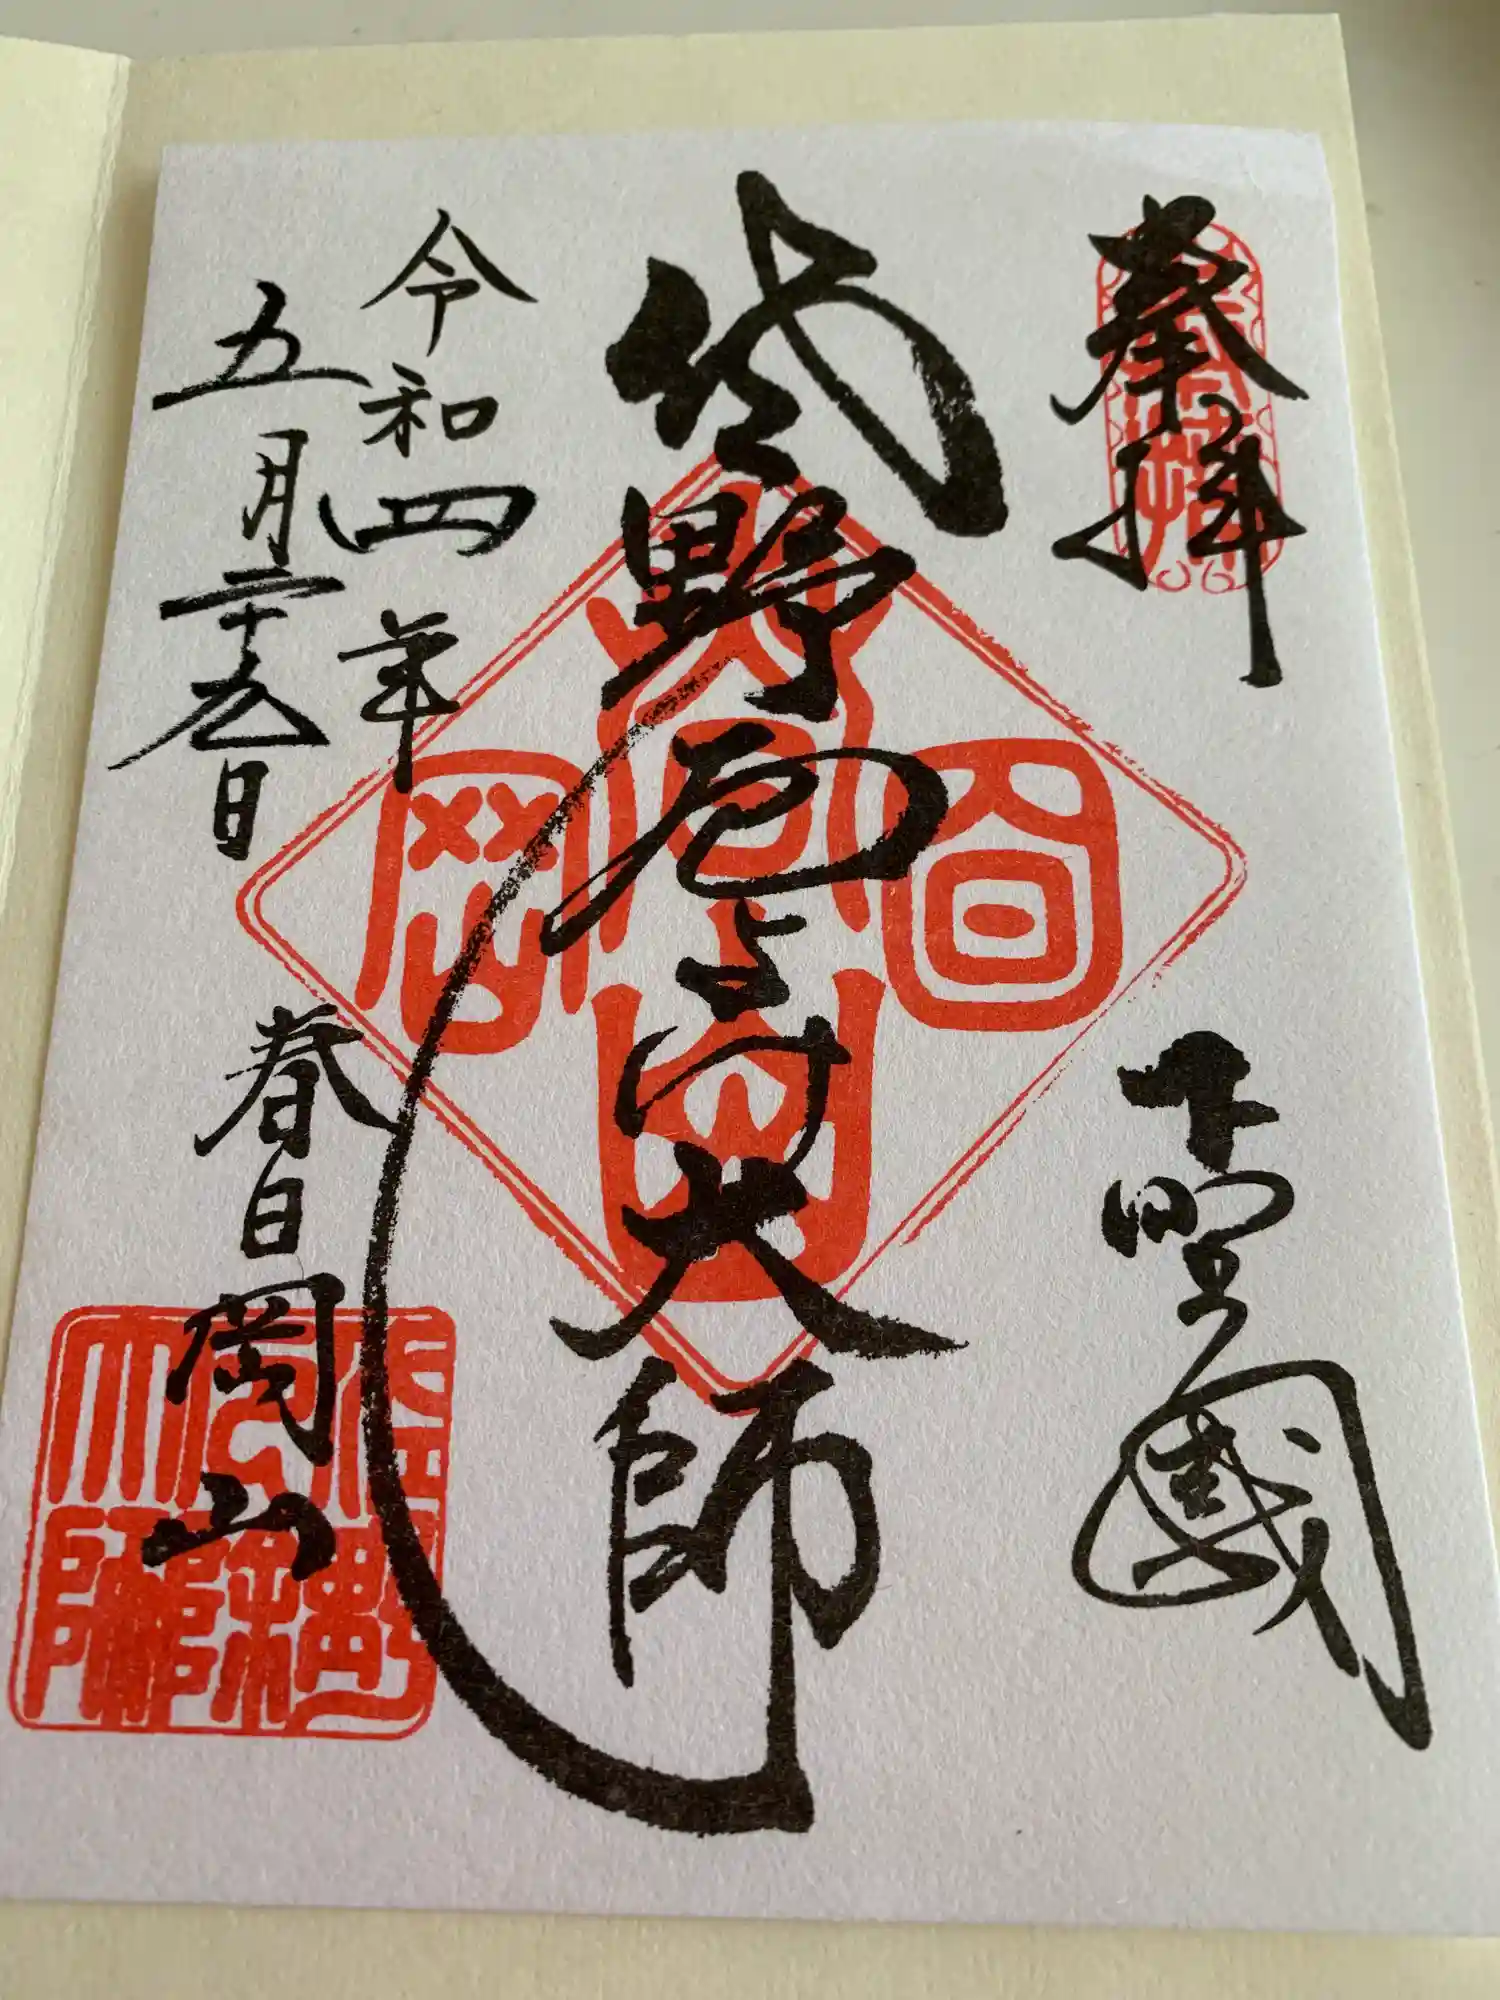 奉拝
下野國
佐野厄よけ大師
令和四年
五月二十九日
春日岡山